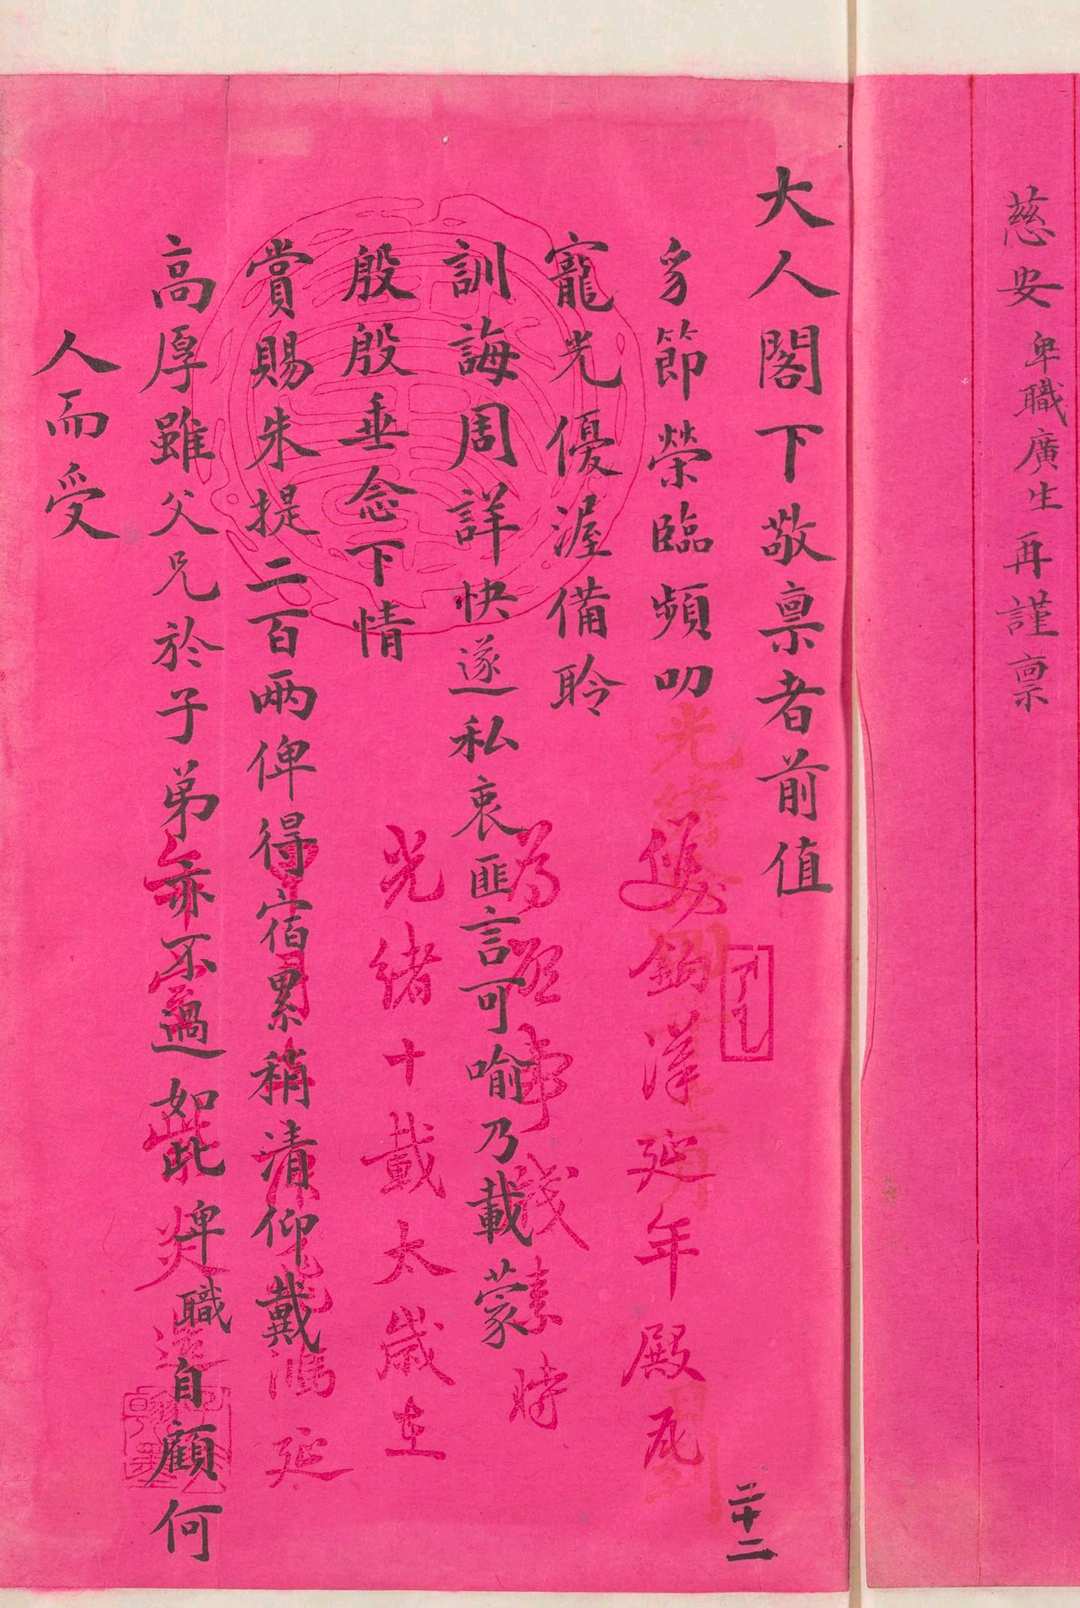 慈安卑職廣生再謹禀
大人閣下敬禀者前值
豸節榮臨頻叨
寵光優渥備聆
訓誨周詳快遂私衷匪言可喻乃載蒙
殷殷垂念下情
賞賜朱提二百兩俾得宿累稍清仰戴
高厚雖父兄於子弟亦不過如此卑職自顧何
人而受
二十二
漢延年殿瓦
為啟事牋素時
光緒十載太歲在